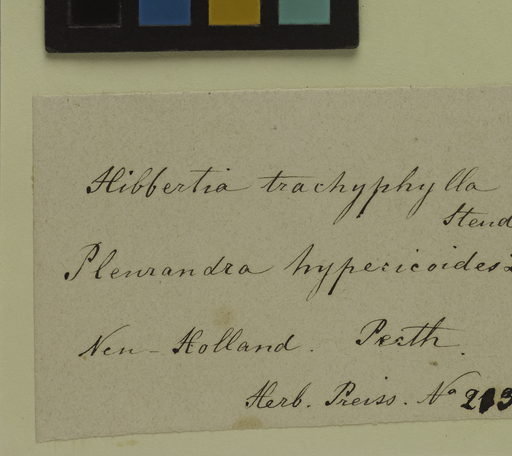 Hibbertia trachyphylla
Steud
Pleurandra hypericoides
Neu-Holland. Perth.
Herb. Preiss. No 213